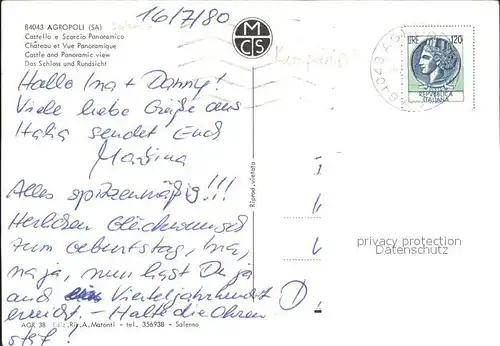 16/7/80
84043 AGROPOLI (SA)
Castello e Scorcio Panoramico
Château et Vue Panoramique
Castle and Panoramic view
Das Schloss und Rundsicht
MCS
LIRE 120
REPVBBLICA
ITALIANA
84043 AG
Kampanien
Hallo Ina + Danny!
Viele liebe Grüße aus
Italia sendet Euch
Martina
Alles spitzenmäßig!!!
Herlichen Glückwunsch
zum Geburtstag, Ina,
naja, nun hast Du ja
auch ein Vierteljahrhundert
erreicht. - Halte die Ohren
steif!
Riprod. vietata
AGR 38 Ediz. Ris. A. Matonti - tel. 356938 - Salerno
privacy protection
Datenschutz